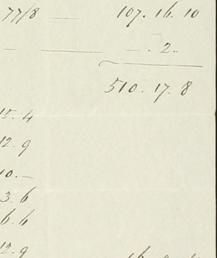 77/8 — 107. 16. 10
— — —. 2. —
510. 17. 8
15. 4
12. 9
10. —
3. 6
6. 6
12. 9